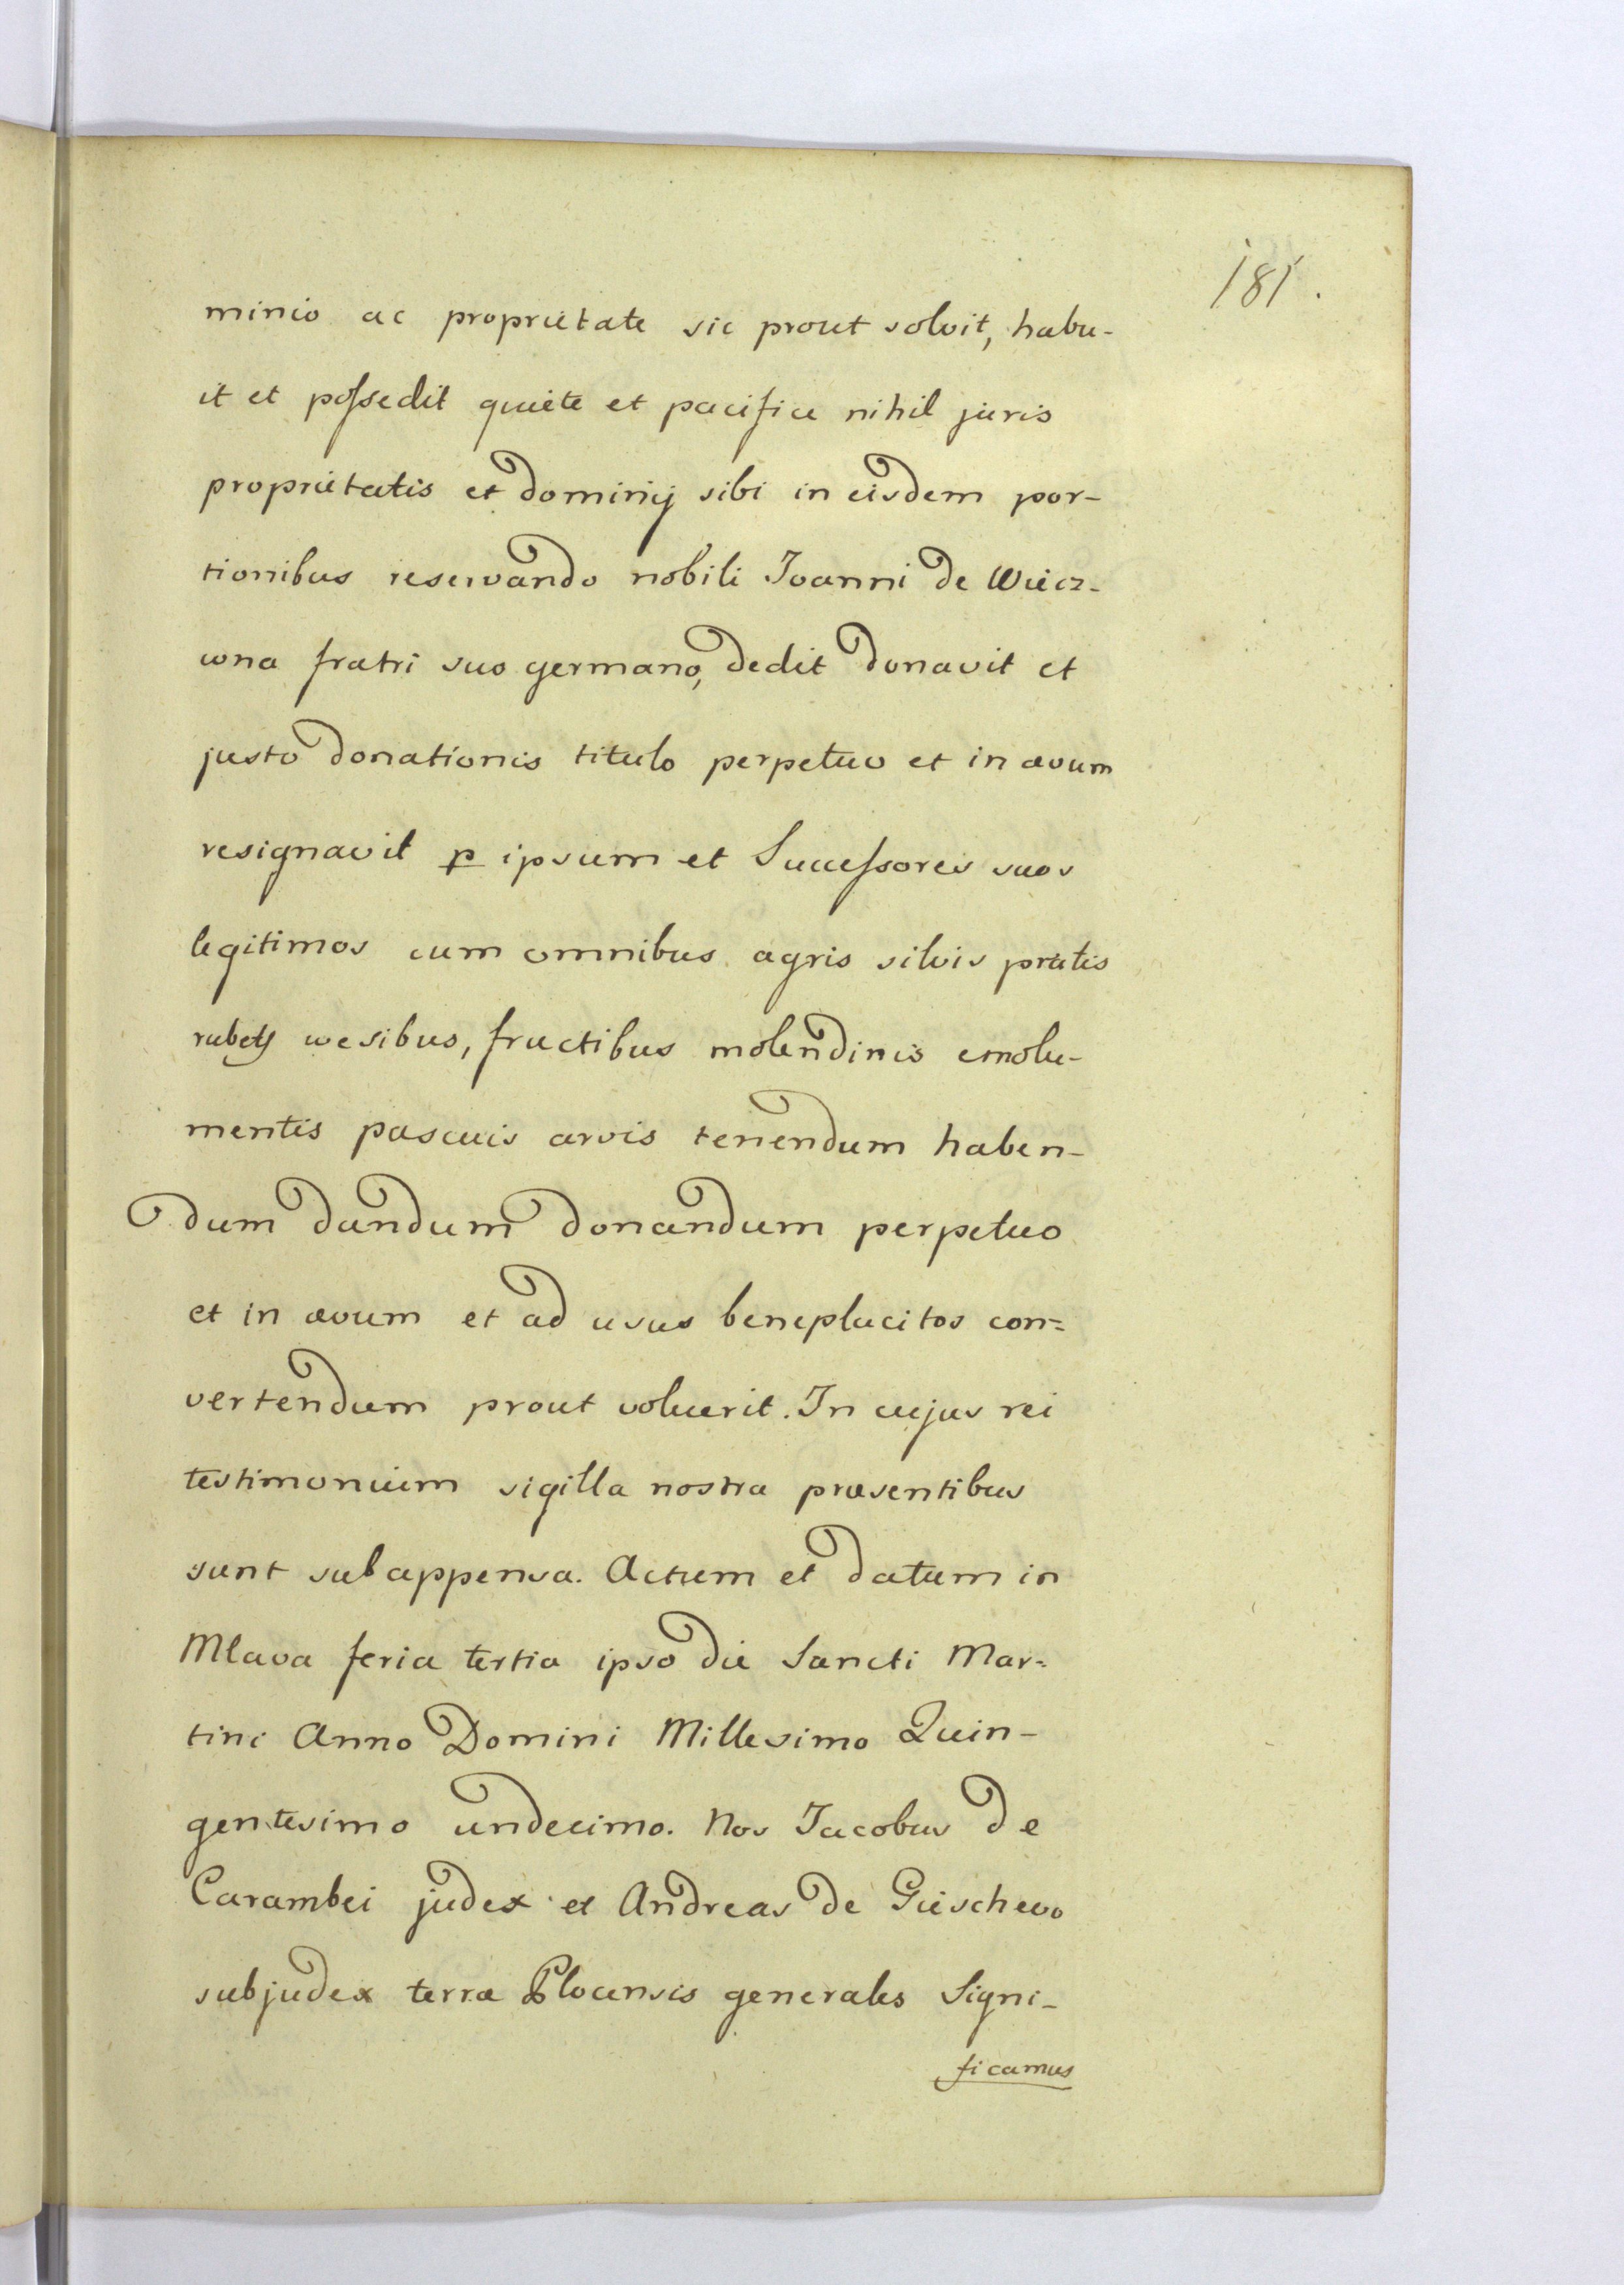 181.
minio ac proprietate sic prout solvit, habu-
it et possedit quiete et pacifice nihil juris
proprietatis et dominij sibi in eisdem por-
tionibus reservando nobili Joanni de Wiecz-
wna fratri suo germano, dedit donavit et
justo donationis titulo perpetuo et in ævum
resignavit p ipsum et Successores suos
legitimos cum omnibus agris silvis pratis
rubetis usibus, fructibus molendinis emolu-
mentis pascuis arvis tenendum haben-
dum dandum donandum perpetuo
et in ævum et ad usus beneplacitos con=
vertendum prout voluerit. In cujus rei
testimonium sigilla nostra præsentibus
sunt subappensa. Actum et datum in
Mlava feria tertia ipso die Sancti Mar=
tini Anno Domini Millesimo Quin-
gentesimo undecimo. Nos Jacobus de
Carambei judex et Andreas de Gieschevo
subjudex terræ Plocensis generales Signi-
ficamus